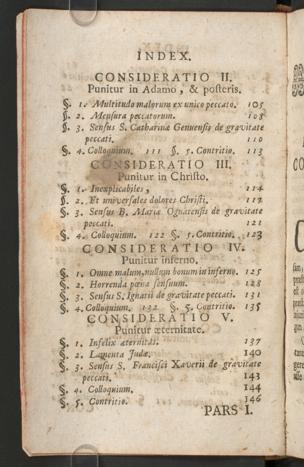 INDEX.
CONSIDERATIO II.
Punitur in Adamo, & posteris.
§. 1. Multitudo malorum ex unico peccato. 105
§. 2. Mensura peccatorum. 108
§. 3. Sensus S. Catharinæ Genuensis de gravitate
peccati. 110
§. 4. Colloquium. 111 §. 5. Contritio. 113
CONSIDERATIO III.
Punitur in Christo.
§. 1. Inexplicabiles, 114
§. 2. Et universales dolores Christi. 117
§. 3. Sensus B. Mariæ Ogniatensis de gravitate
peccati. 121
§. 4. Colloquium. 122 §. 5. Contritio. 123
CONSIDERATIO IV.
Punitur inferno.
§. 1. Omne malum, nullum bonum in inferno. 125
§. 2. Horrenda pœna sensuum. 128
§. 3. Sensus S. Ignatii de gravitate peccati. 131
§. 4. Colloquium. 132 §. 5. Contritio. 135
CONSIDERATIO V.
Punitur æternitate.
§. 1. Infelix æternitas. 137
§. 2. Lamenta Judæ. 140
§. 3. Sensus S. Francisci Xaverii de gravitate
peccati. 143
§. 4. Colloquium. 144
§. 5. Contritio. 146
PARS I.